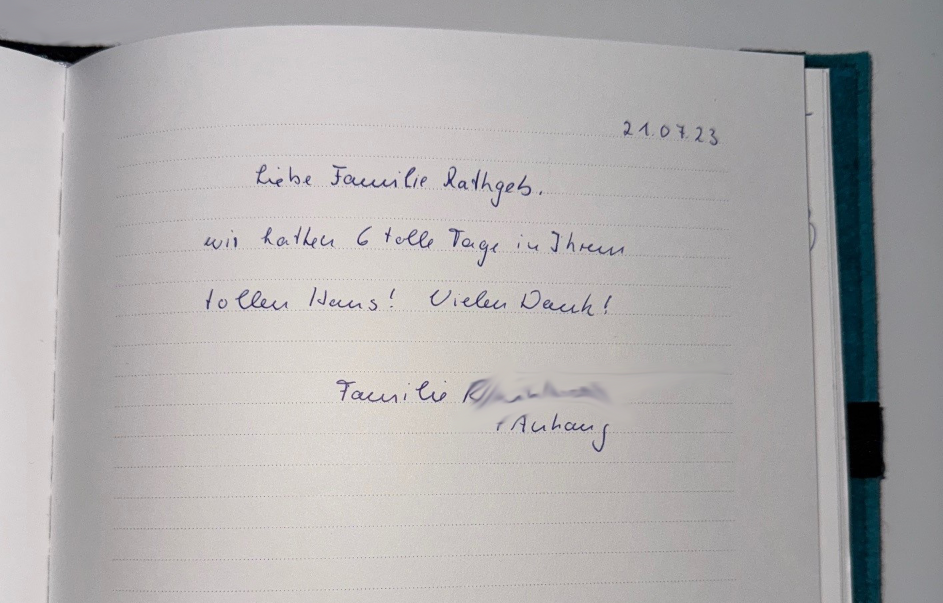 21.07.23
Liebe Familie Rathgeb.
wir hatten 6 tolle Tage in Ihrem
tollen Haus! Vielen Dank!
Familie
+ Anhang